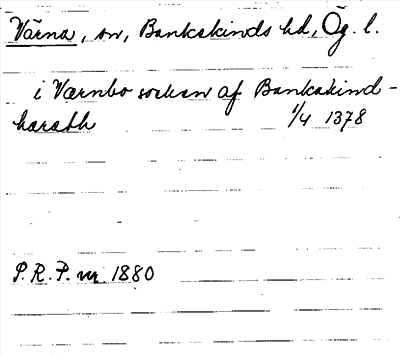 Värna, sn, Bankekinds hd, Ög. l.
i Værnbo sokn af Bankakind-
haradh 1/4 1378
P. R. P. nr 1880